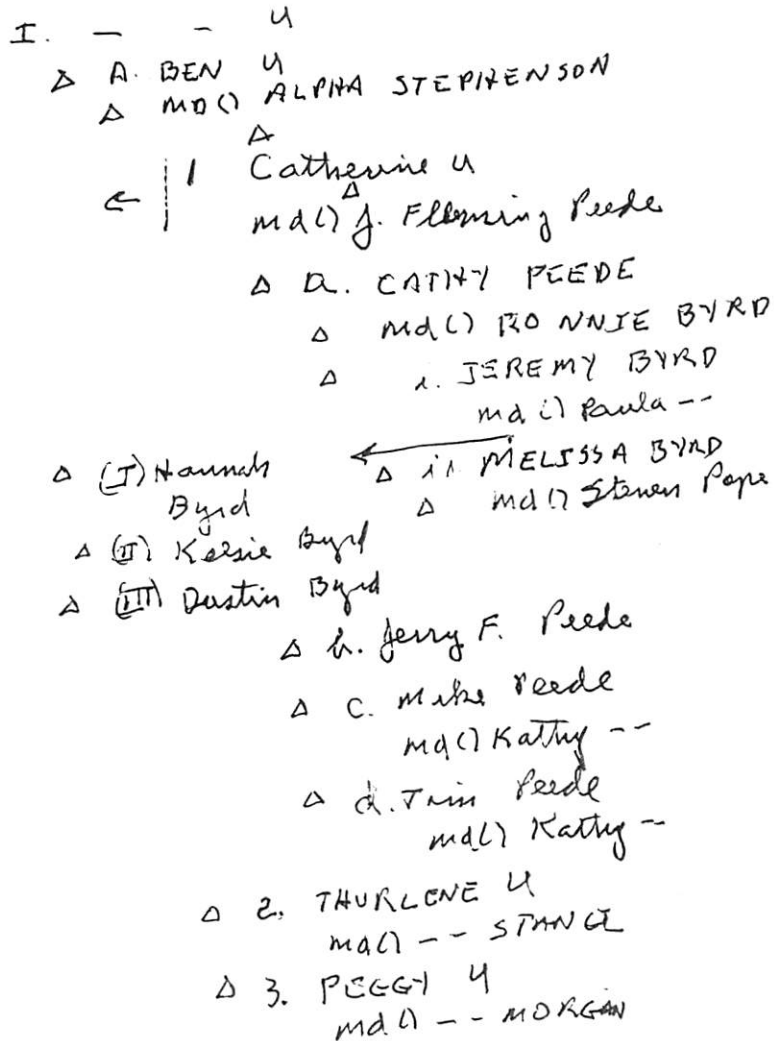 I. - - U
Δ A. BEN U
Δ MD () ALPHA STEPHENSON
Δ
← 1 Catherine U
Δ
md () J. Flleming Peede
Δ a. CATHY PEEDE
Δ md () RONNIE BYRD
Δ i. JEREMY BYRD
md () Paula --
Δ (I) Hannah Byrd
Δ ii MELISSA BYRD
Δ md () Steven Pope
Δ (II) Kelsie Byrd
Δ (III) Dustin Byrd
Δ b. Jerry F. Peede
Δ c. Mike Peede
md () Kathy --
Δ d. Tim Peede
md () Kathy -
Δ 2. THURLENE U
md () -- 
Δ 3. PEGGY U
md () -- MORGAN